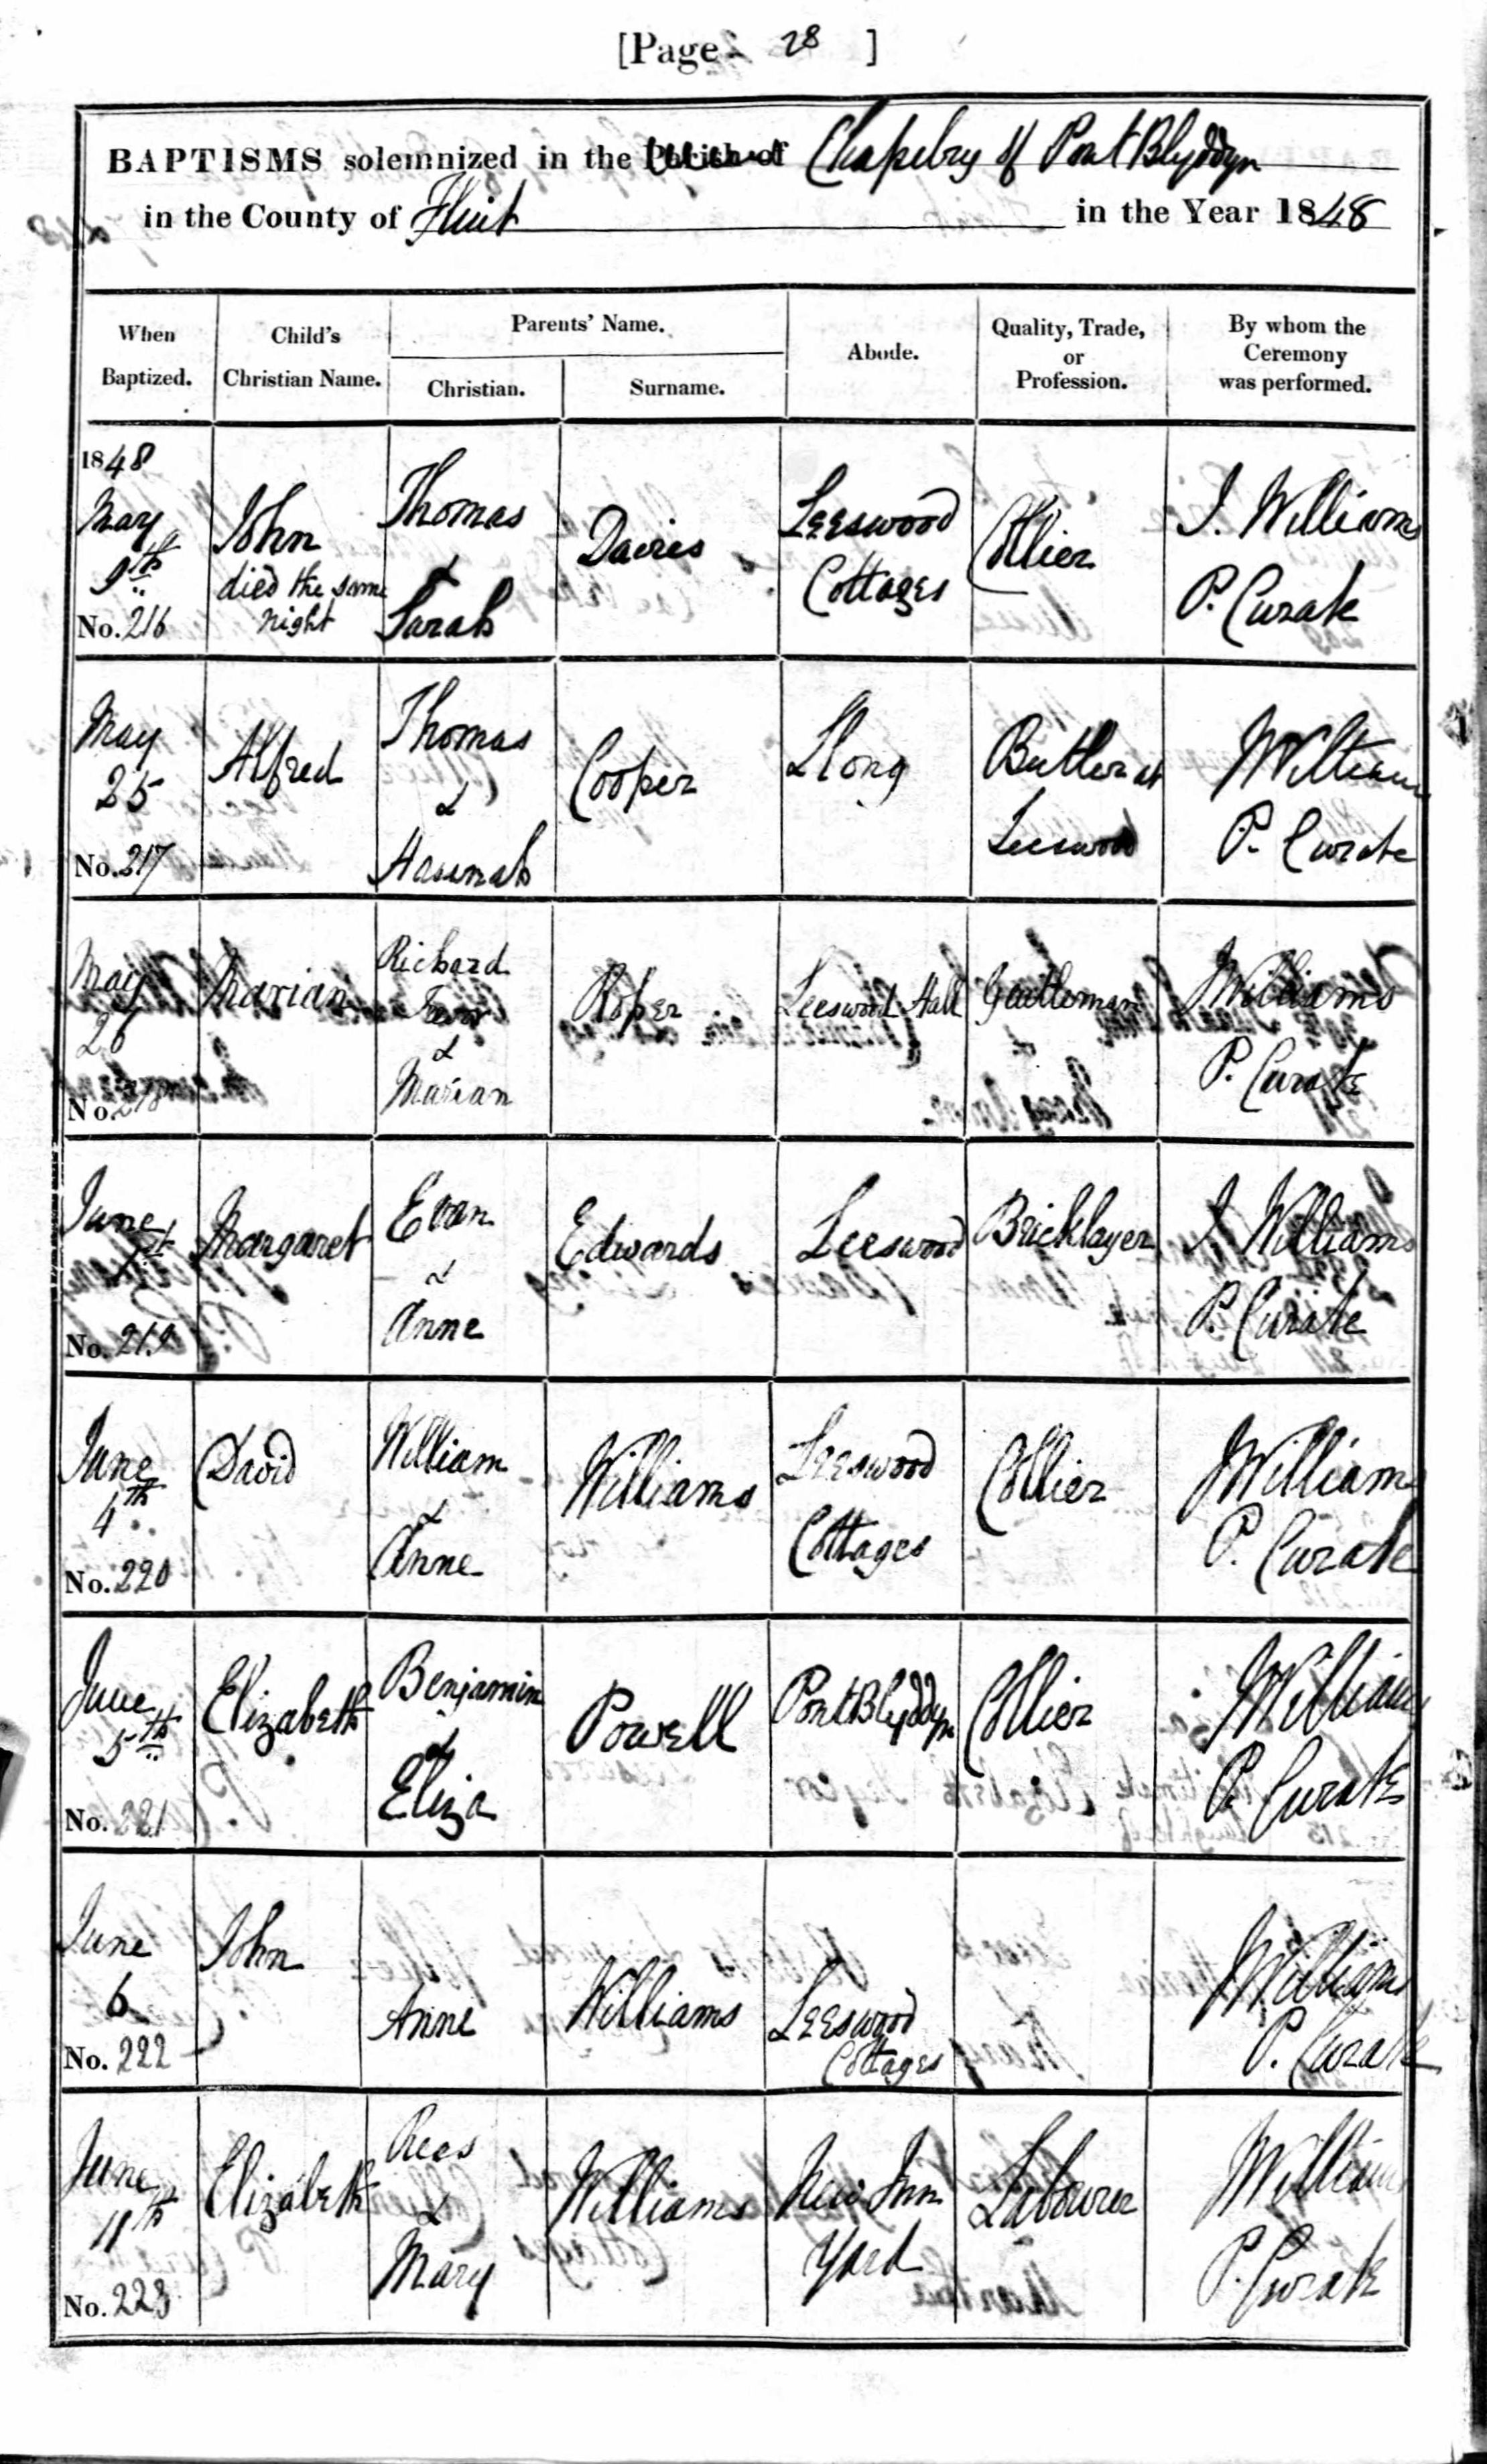 [Page 28 ]
BAPTISMS solemnized in the Parish of Chapelry of Pont Blyddyn
in the County of Flint in the Year 1848
When Baptized. Child's Christian Name. Parents' Name. Abode. Quality, Trade, or Profession. By whom the Ceremony was performed.
Christian. Surname.
1848
May
9th
No. 216
John
died the same
night
Thomas
&
Sarah
Davies
Leeswood
Cottages
Collier
J. Williams
P. Curate
May
25
No. 217
Alfred
Thomas
&
Hannah
Cooper
Llong
Butler at
Leeswood
J Williams
P. Curate
May
26
No. 218
Marian
Richard
&
Marian
Roper
Leeswood Hall
Gentleman
J Williams
P. Curate
June
1st
No. 219
Margaret
Evan
&
Anne
Edwards
Leeswood
Bricklayer
J Williams
P. Curate
June
4th
No. 220
David
William
&
Anne
Williams
Leeswood
Cottages
Collier
J Williams
P. Curate
June
5th
No. 221
Elizabeth
Benjamin
&
Eliza
Powell
Pont Blyddyn
Collier
J Williams
P. Curate
June
6
No. 222
John
Anne
Williams
Leeswood
Cottages
J Williams
P. Curate
June
11th
No. 223
Elizabeth
Rees
&
Mary
Williams
New Inn
Yard
Labourer
J Williams
P. Curate